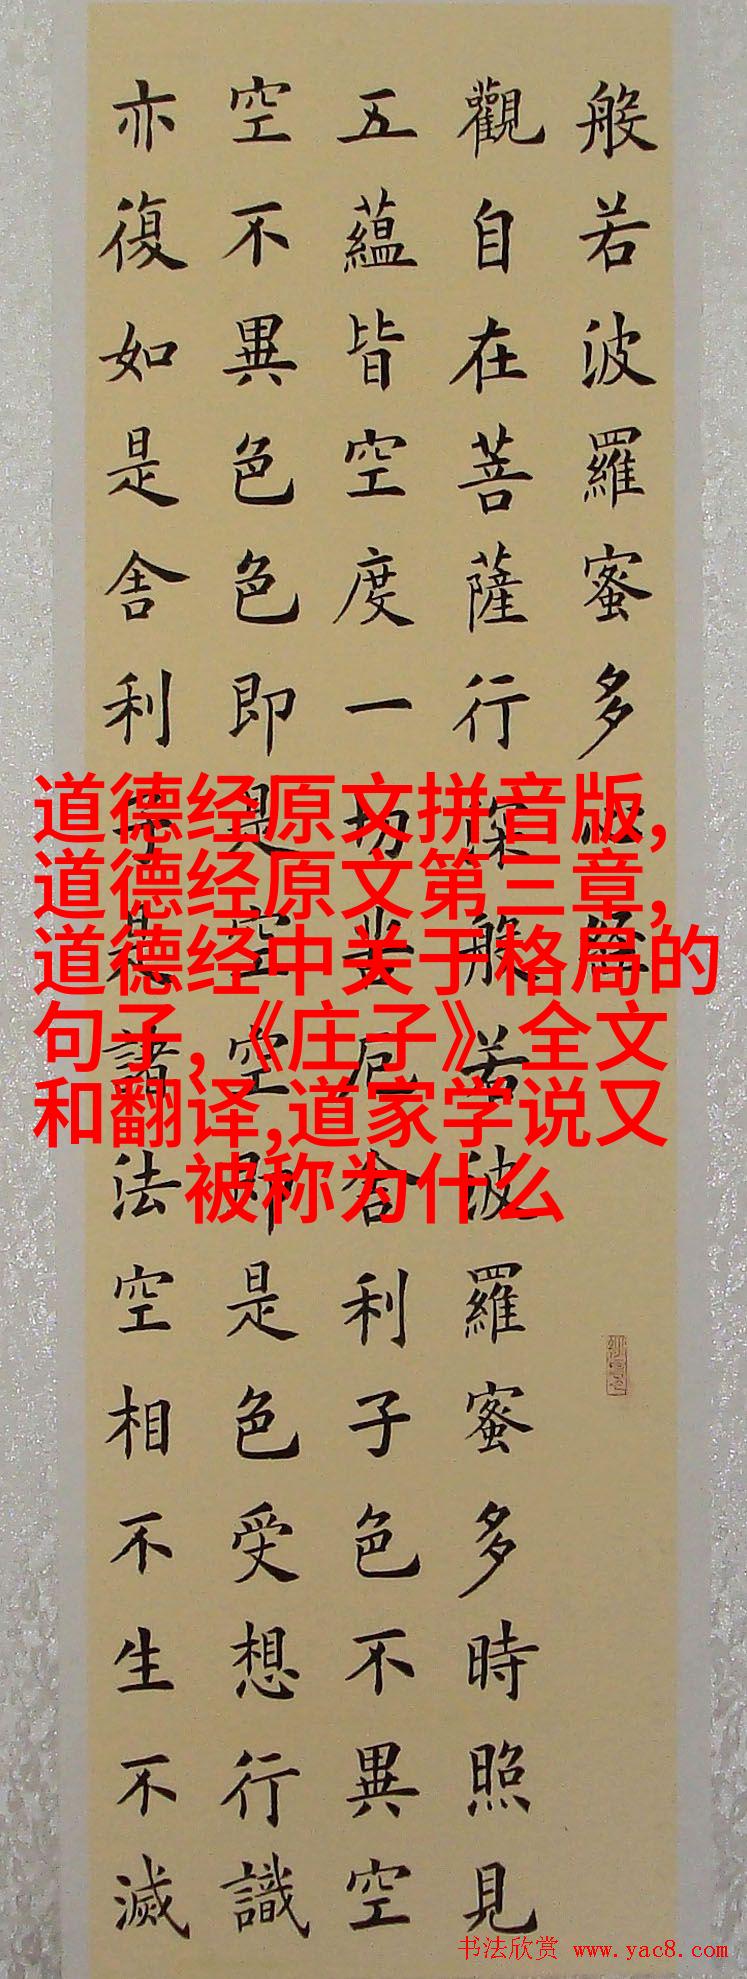 般若波羅蜜多心經
觀自在菩薩行深般若波羅蜜多時照見
五蘊皆空度一切苦厄舍利子色不異空
空不異色色即是空空即是色受想行識
亦復如是舍利子是諸法空相不生不滅
道德经原文拼音版,
道德经原文第三章,
道德经中关于格局的
句子,《庄子》全文
和翻译,道家学说又
被称为什么
书法欣赏 www.yac8.com